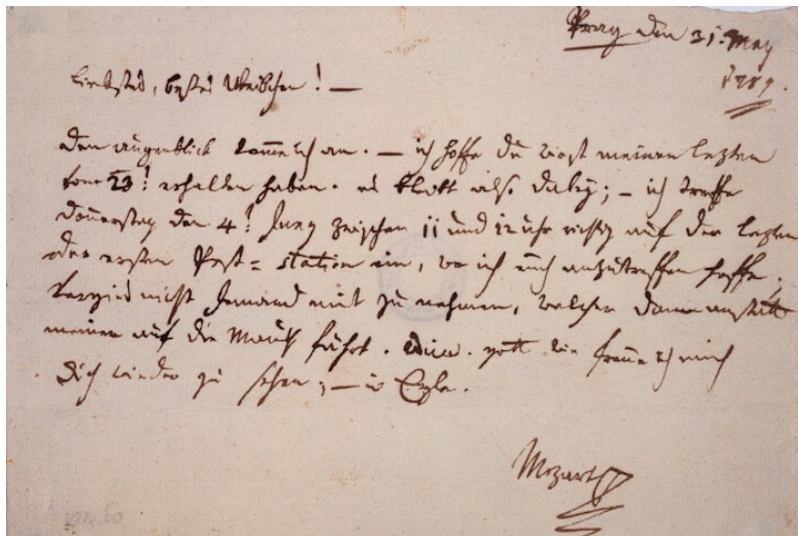 Prag den 31:t May
1789.
Liebstes, bestes Weibchen! —
den augenblick komme ich an. — ich hoffe du wirst meinen lezten
vom 23:t erhalten haben. es bleibt also dabey; — ich treffe
Donnerstag den 4:t Juny zwischen 11 und 12 uhr richtig auf der lezten
oder ersten Post=station ein, wo ich euch anzutreffen hoffe;
vergiss nicht Jemand mit zu nehmen, welcher dann anstatt
meiner auf die Mauth fährt. adieu. gott wie freue ich mich
dich wieder zu sehen; — in Eyle.
Mozart